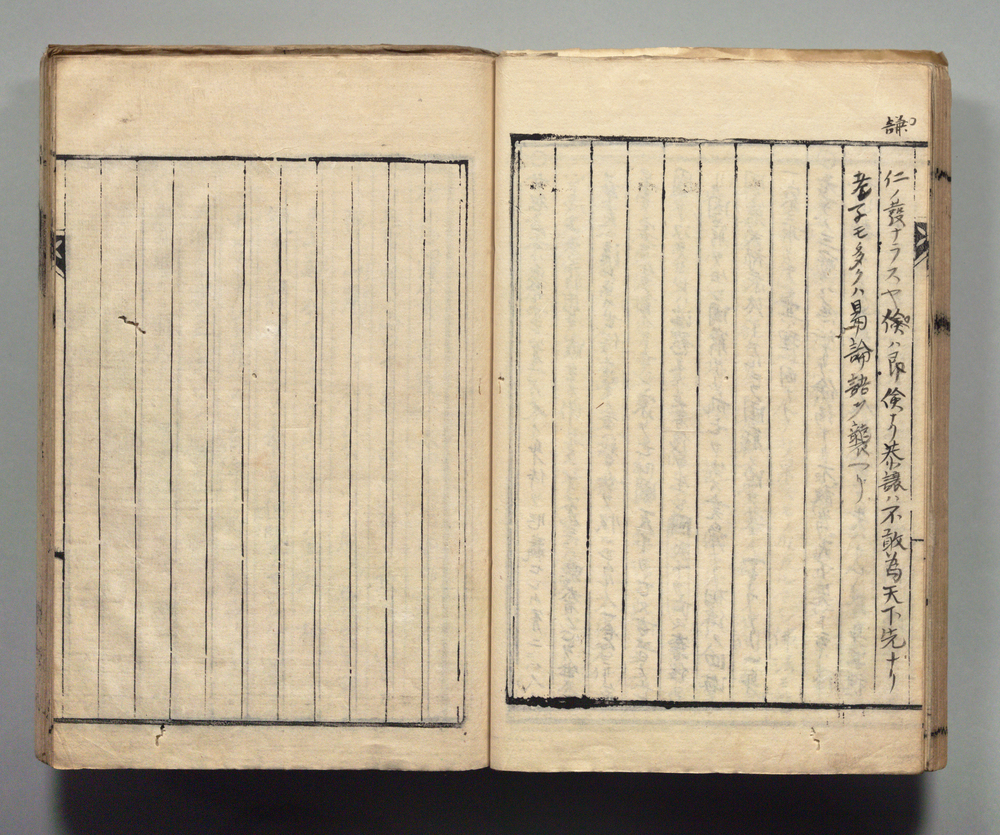 謙
仁ノ發ナラスヤ儉ハ即儉ナリ恭讓ハ不敢為天下先ナリ
老子モ多クハ易論語ヲ襲ヘリ